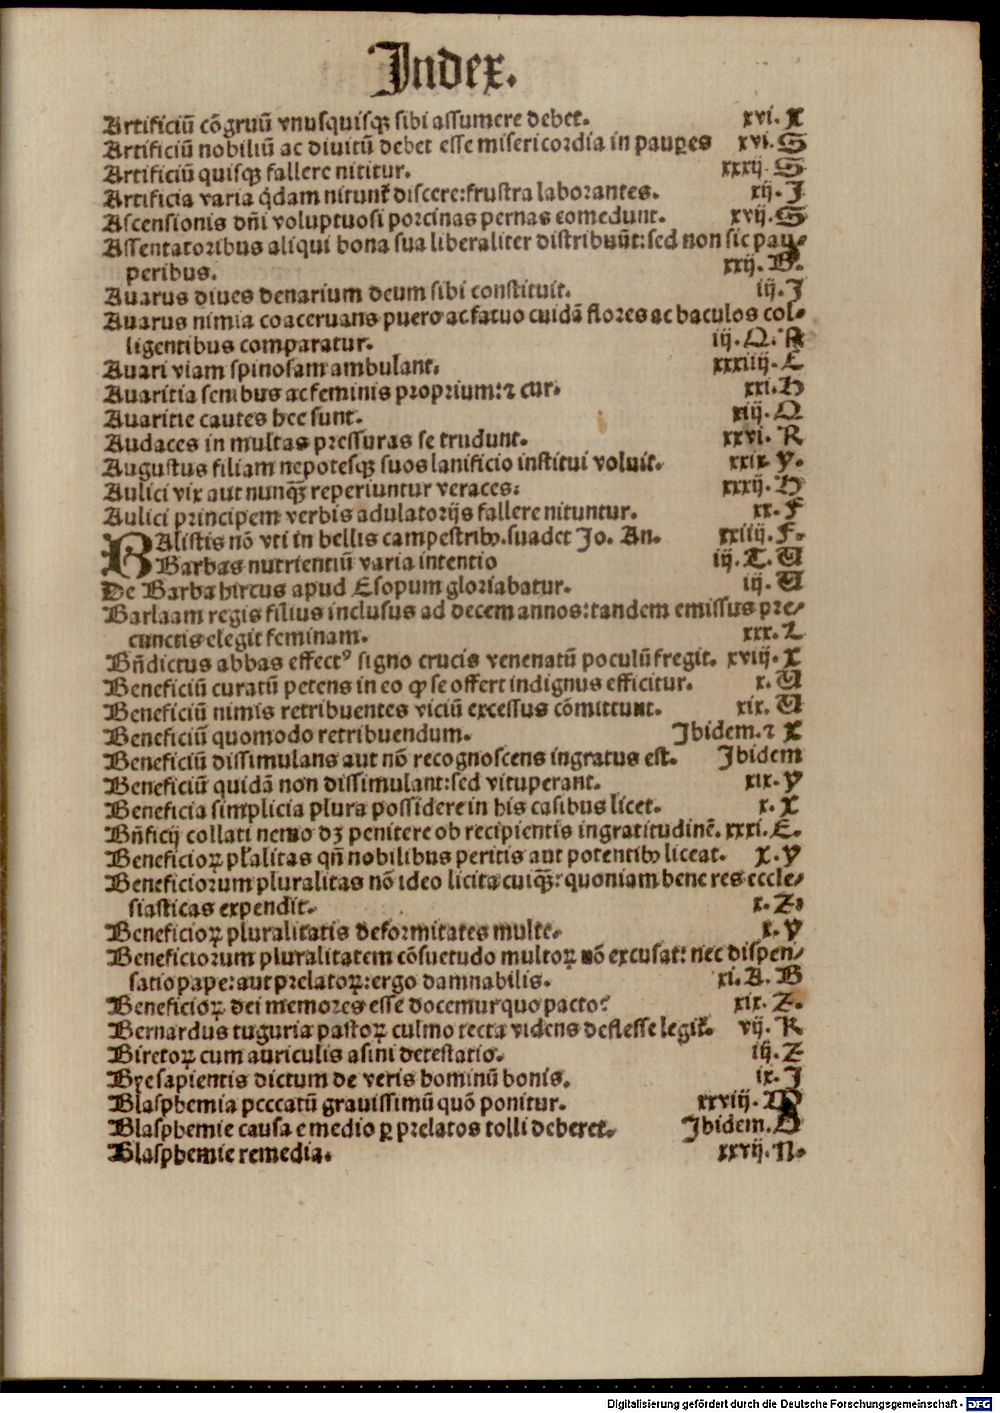 Index.
Artificiū cōgruū vnusquisqꝫ sibi assumere debet. xvi. X
Artificiū nobiliū ac diuitū debet esse misericordia in pauꝑes xvi. S
Artificiū quisqꝫ fallere nititur. xxxij. S
Artificia varia q̄dam nitunt̄ discere:frustra laborantes. xij. I
Ascensionis dn̄i voluptuosi porcinas pernas comedunt. xvij. S
Assentatoribus aliqui bona sua liberaliter distribuūt:sed non sic pau-
peribus. xxij. B.
Auarus diues denarium deum sibi constituit. iij. I
Auarus nimia coaceruans puero ac fatuo cuidā flores ac baculos col-
ligentibus comparatur. iij. Q. R
Auari viam spinosam ambulant. xxxiiij. E
Auaritia senibus ac feminis proprium:⁊ cur. xxi. H
Auaritie cautes hec sunt. xiij. Q
Audaces in multas pressuras se trudunt. xxvi. R
Augustus filiam nepotesqꝫ suos lanificio institui voluit. xxix. Y.
Aulici vix aut nunqꝫ̄ reperiuntur veraces: xxxij. H
Aulici principem verbis adulatorijs fallere nituntur. xx. F
BAlistis nō vti in bellis campestribꝰ.suadet Jo. An. xxiiij. F.
Barbas nutrientiū varia intentio iij. T. U
De Barba hircus apud Esopum gloriabatur. iij. U
Barlaam regis filius inclusus ad decem annos:tandem emissus pre-
cunctis elegit feminam. xxx. Z
Bn̄dictus abbas effectꝰ signo crucis venenatū poculū fregit. xviij. X
Beneficiū curatū petens in eo ꝙ se offert indignus efficitur. x. U
Beneficiū nimis retribuentes viciū excessus cōmittunt. xix. U
Beneficiū quomodo retribuendum. Ibidem.⁊ X
Beneficiū dissimulans aut nō recognoscens ingratus est. Ibidem
Beneficiū quidā non dissimulant:sed vituperant. xix. Y
Beneficia simplicia plura possidere in his casibus licet. x. X
Bn̄ficij collati nemo dꝫ penitere ob recipientis ingratitudinē. xxxi. E.
Beneficioꝝ pl̄alitas qn̄ nobilibus peritis aut potentibꝰ liceat. X. Y
Beneficiorum pluralitas nō ideo licita cuiqꝫ̄: quoniam bene res eccle-
siasticas expendit. x. Z.
Beneficioꝝ pluralitatis deformitates multe. x. Y
Beneficiorum pluralitatem cōsuetudo multoꝝ nō excusat: nec dispen-
satio pape:aut prelatoꝝ:ergo damnabilis. xi. A. B
Beneficioꝝ dei memores esse docemur quo pacto? xix. Z.
Bernardus tuguria pastoꝝ culmo tecta videns deflesse legit̄. vij. R
Biretoꝝ cum auriculis asini detestatio. iij. Z
Bye sapientis dictum de veris hominū bonis. ix. I
Blasphemia peccatū grauissimū quō ponitur. xxviij. M
Blasphemie causa e medio ꝑ prelatos tolli deberet. Ibidem. O
Blasphemie remedia. xxvij. N.
Digitalisierung gefördert durch die Deutsche Forschungsgemeinschaft - DFG